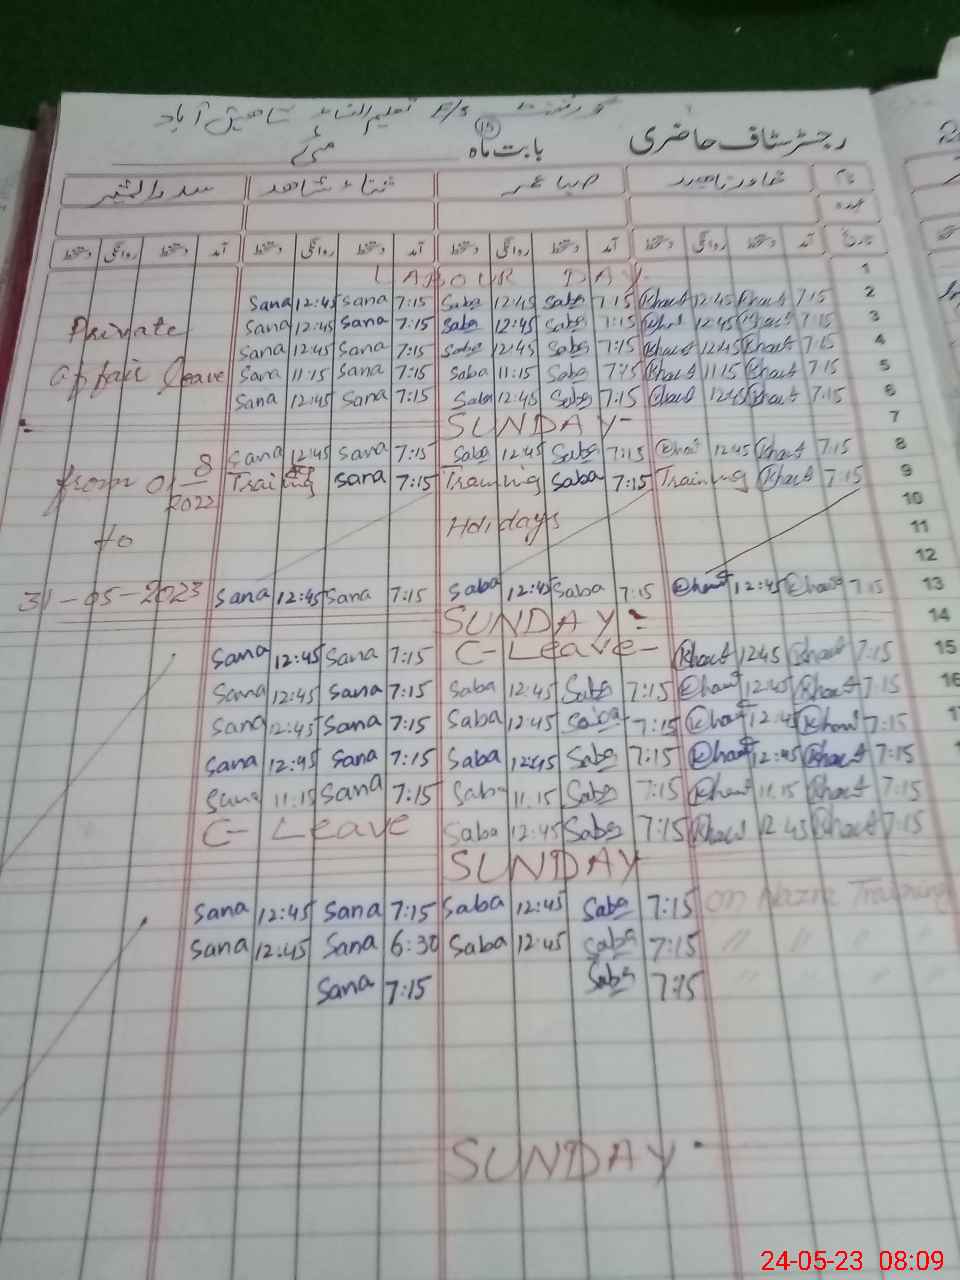 گورنمنٹ E/S تعلیم النساء شاھین آباد
رجسٹر سٹاف حاضری بابت ماہ مئی
نام صبا عمر ثناء شاھد سدرۃ المنتہیٰ
عہدہ
تاریخ آمد دستخط روانگی دستخط آمد دستخط روانگی دستخط آمد دستخط روانگی دستخط آمد دستخط روانگی دستخط
LABOUR DAY 1
Sana 12:45 Sana 7:15 Saba 12:45 Saba 7:15 12:45 7:15 2
Private Sana 12:45 Sana 7:15 Saba 12:45 Saba 7:15 12:45 7:15 3
Sana 12:45 Sana 7:15 Saba 12:45 Saba 7:15 12:45 7:15 4
affair leave Sana 11:15 Sana 7:15 Saba 11:15 Saba 7:15 11:15 7:15 5
Sana 12:45 Sana 7:15 Saba 12:45 Saba 7:15 12:45 7:15 6
SUNDAY- 7
Sana 12:45 Sana 7:15 Saba 12:45 Saba 7:15 12:45 7:15 8
from 01-8-2022 Training Sana 7:15 Training Saba 7:15 Training 7:15 9
10
to Holidays 11
12
31-05-2023 Sana 12:45 Sana 7:15 Saba 12:45 Saba 7:15 12:45 7:15 13
SUNDAY- 14
Sana 12:45 Sana 7:15 C-Leave- 12:45 7:15 15
Sana 12:45 Sana 7:15 Saba 12:45 Saba 7:15 12:45 7:15 16
Sana 12:45 Sana 7:15 Saba 12:45 Saba 7:15 12:45 7:15
Sana 12:45 Sana 7:15 Saba 12:45 Saba 7:15 12:45 7:15
Sana 11:15 Sana 7:15 Saba 11:15 Saba 7:15 11:15 7:15
C-Leave Saba 12:45 Saba 7:15 12:45 7:15
SUNDAY
Sana 12:45 Sana 7:15 Saba 12:45 Saba 7:15 on Training
Sana 12:45 Sana 6:30 Saba 12:45 Saba 7:15 " " " "
Sana 7:15 Saba 7:15 " " " "
SUNDAY
24-05-23 08:09